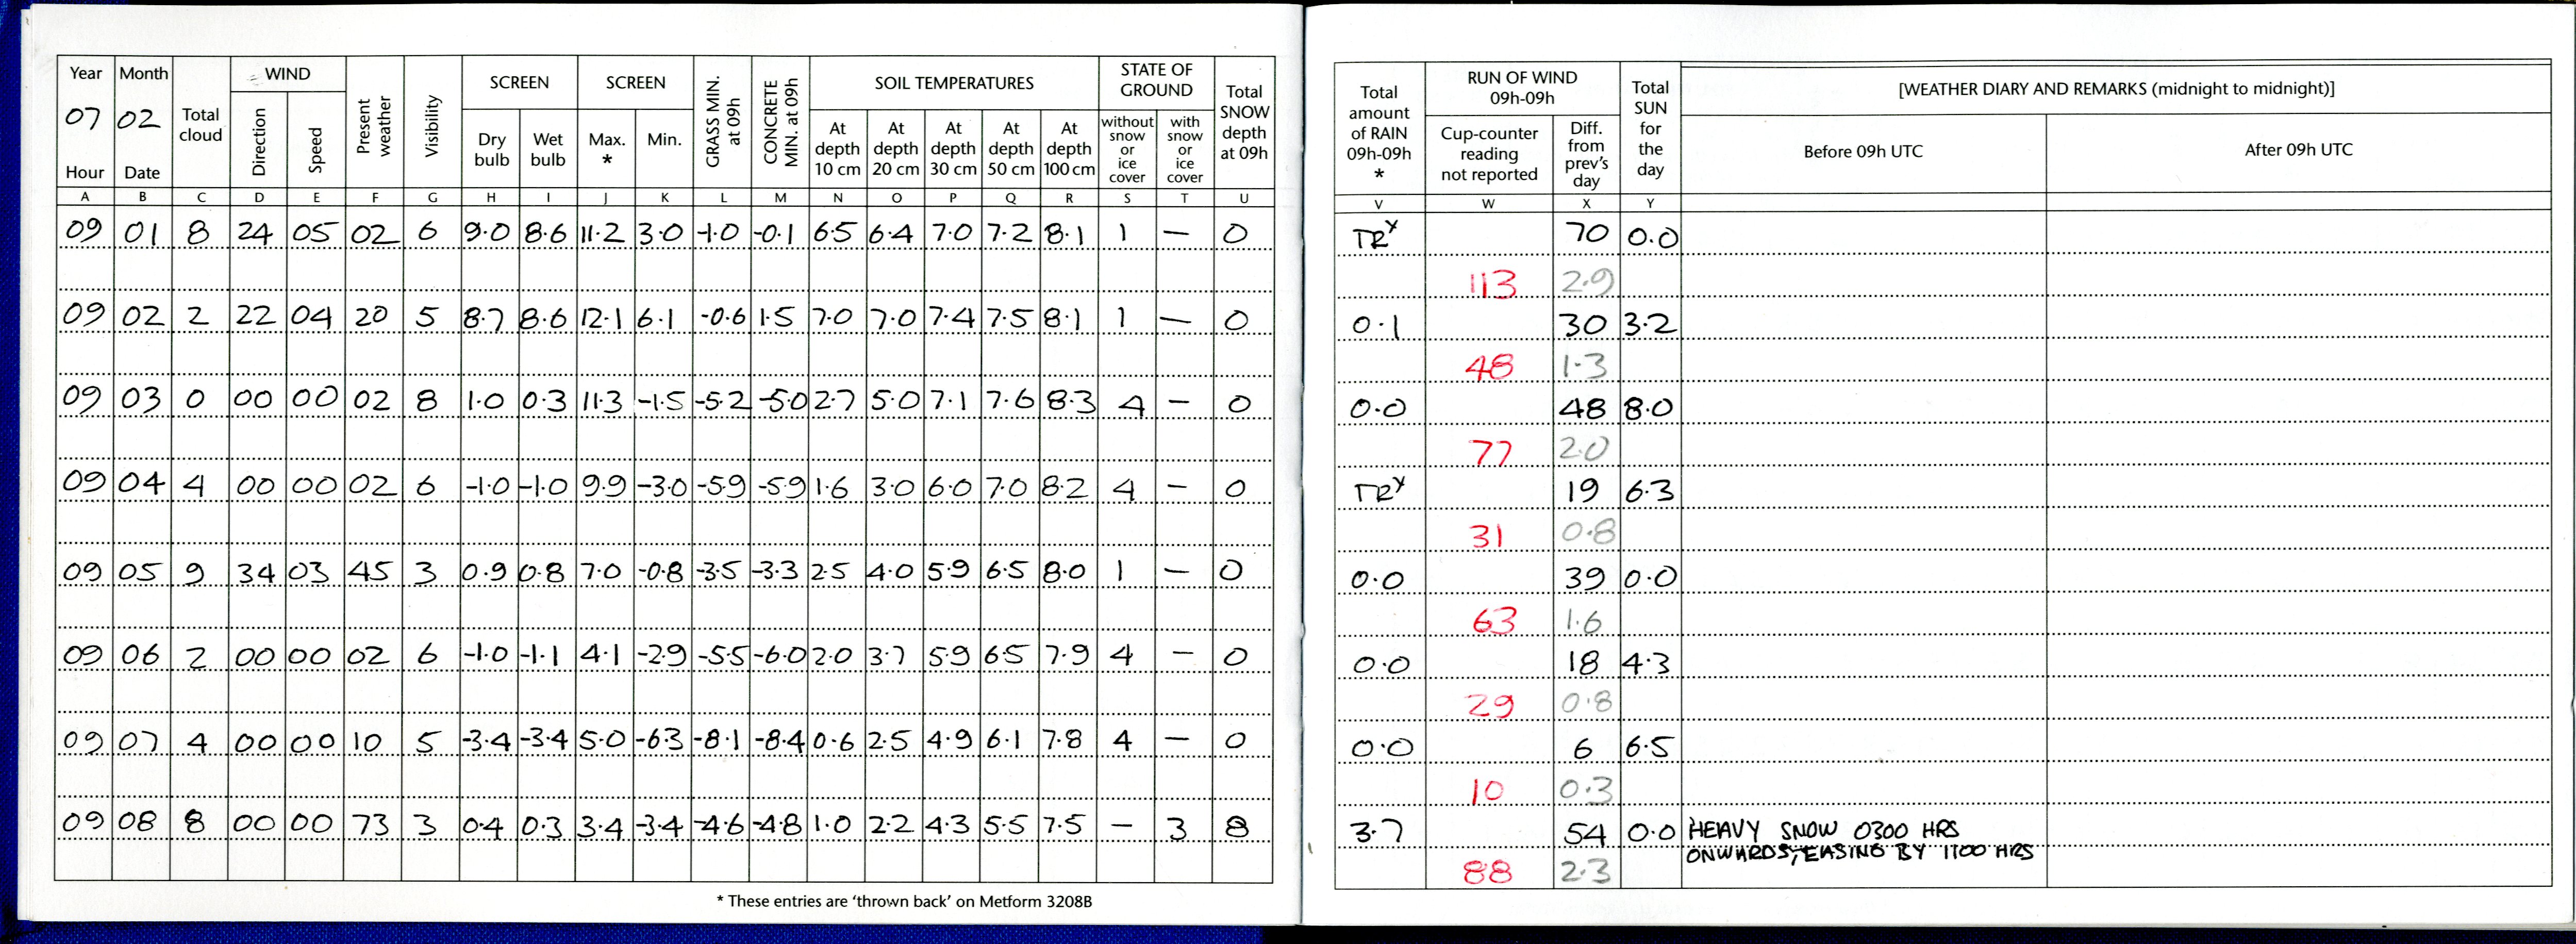 Year Month Total cloud WIND Present weather Visibility SCREEN SCREEN GRASS MIN. at 09h CONCRETE MIN. at 09h SOIL TEMPERATURES STATE OF GROUND Total SNOW depth at 09h
07 02 Direction Speed Dry bulb Wet bulb Max. * Min. At depth 10 cm At depth 20 cm At depth 30 cm At depth 50 cm At depth 100 cm without snow or ice cover with snow or ice cover
Hour Date
A B C D E F G H I J K L M N O P Q R S T U
09 01 8 24 05 02 6 9.0 8.6 11.2 3.0 -1.0 -0.1 6.5 6.4 7.0 7.2 8.1 1 — 0
09 02 2 22 04 20 5 8.7 8.6 12.1 6.1 -0.6 1.5 7.0 7.0 7.4 7.5 8.1 1 — 0
09 03 0 00 00 02 8 1.0 0.3 11.3 -1.5 -5.2 -5.0 2.7 5.0 7.1 7.6 8.3 4 — 0
09 04 4 00 00 02 6 -1.0 -1.0 9.9 -3.0 -5.9 -5.9 1.6 3.0 6.0 7.0 8.2 4 — 0
09 05 9 34 03 45 3 0.9 0.8 7.0 -0.8 -3.5 -3.3 2.5 4.0 5.9 6.5 8.0 1 — 0
09 06 2 00 00 02 6 -1.0 -1.1 4.1 -2.9 -5.5 -6.0 2.0 3.7 5.9 6.5 7.9 4 — 0
09 07 4 00 00 10 5 -3.4 -3.4 5.0 -6.3 -8.1 -8.4 0.6 2.5 4.9 6.1 7.8 4 — 0
09 08 8 00 00 73 3 0.4 0.3 3.4 -3.4 -4.6 -4.8 1.0 2.2 4.3 5.5 7.5 — 3 8
* These entries are 'thrown back' on Metform 3208B
Total amount of RAIN 09h-09h * RUN OF WIND 09h-09h Total SUN for the day [WEATHER DIARY AND REMARKS (midnight to midnight)]
Cup-counter reading not reported Diff. from prev's day Before 09h UTC After 09h UTC
V W X Y
TRY 70 0.0
113 2.9
0.1 30 3.2
48 1.3
0.0 48 8.0
77 2.0
TRY 19 6.3
31 0.8
0.0 39 0.0
63 1.6
0.0 18 4.3
29 0.8
0.0 6 6.5
10 0.3
3.7 54 0.0 HEAVY SNOW 0300 HRS
ONWARDS, EASING BY 1100 HRS
88 2.3